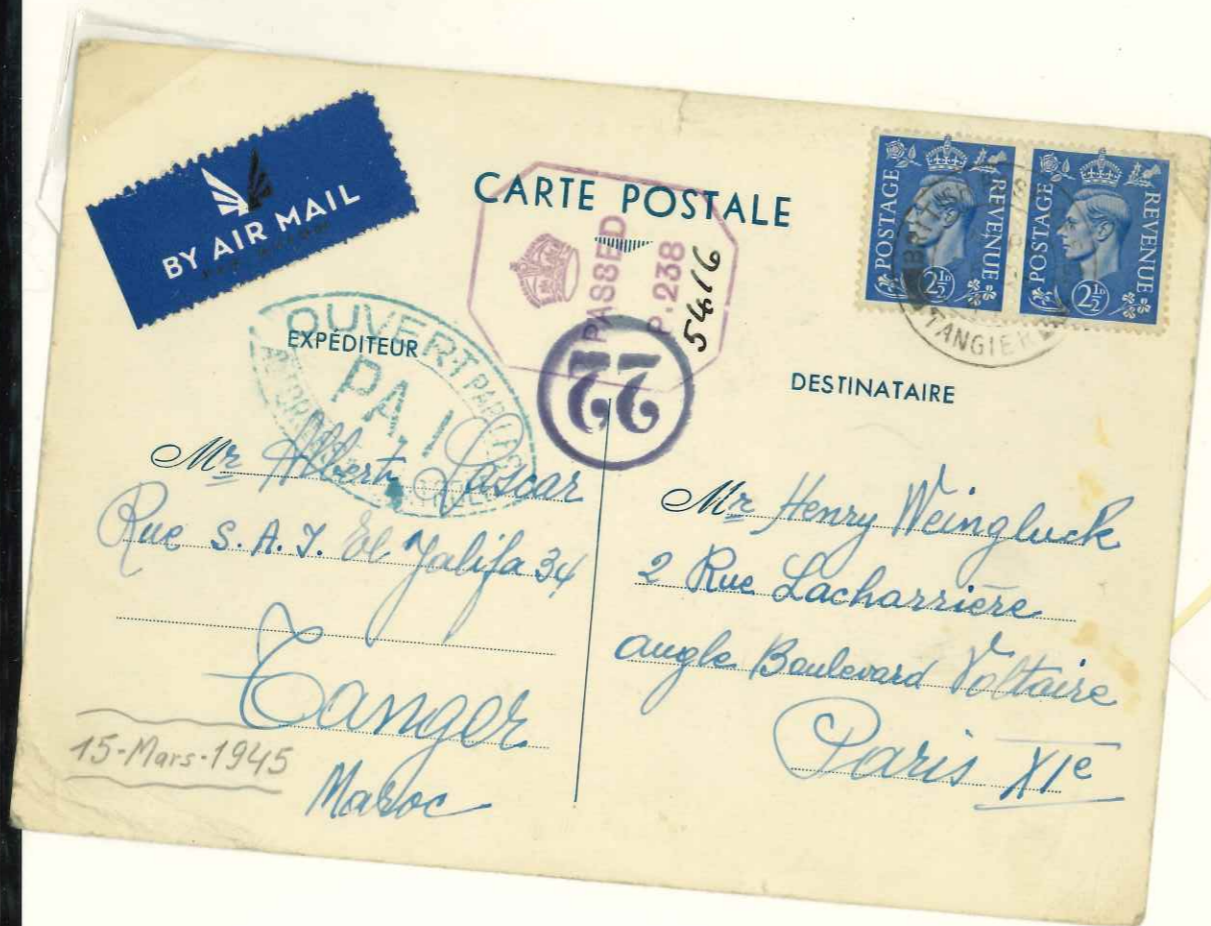 BY AIR MAIL
PAR AVION
CARTE POSTALE
PASSED
P.238
5416
22
POSTAGE REVENUE
2½D
POSTAGE REVENUE
2½D
BRITISH
TANGIER
OUVERT PAR LES
PA.J
EXPÉDITEUR
DESTINATAIRE
Mr Albert Lascar
Rue S. A. I. El Jalifa 34
Tanger
Maroc
15-Mars-1945
Mr Henry Weingluck
2 Rue Lacharrière
angle Boulevard Voltaire
Paris XIe